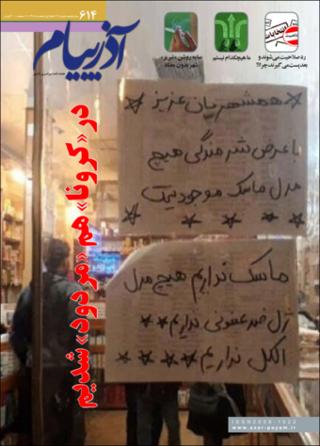 ۶۱۴
آذرپیام
رد صلاحیت می‌شوند و
بعد پست می‌گیرند، چرا؟!
ما هیچکدام نیستیم
در «کرونا» هم «مردود» شدیم
* همشهریان عزیز *
با عرض شرمندگی هیچ
مدل ماسک موجود نیست
* * * * *
ماسک نداریم هیچ مدل
ژل ضدعفونی نداریم **
الکل نداریم * * * *
ISSN2008-1022
www.azar-payam.ir